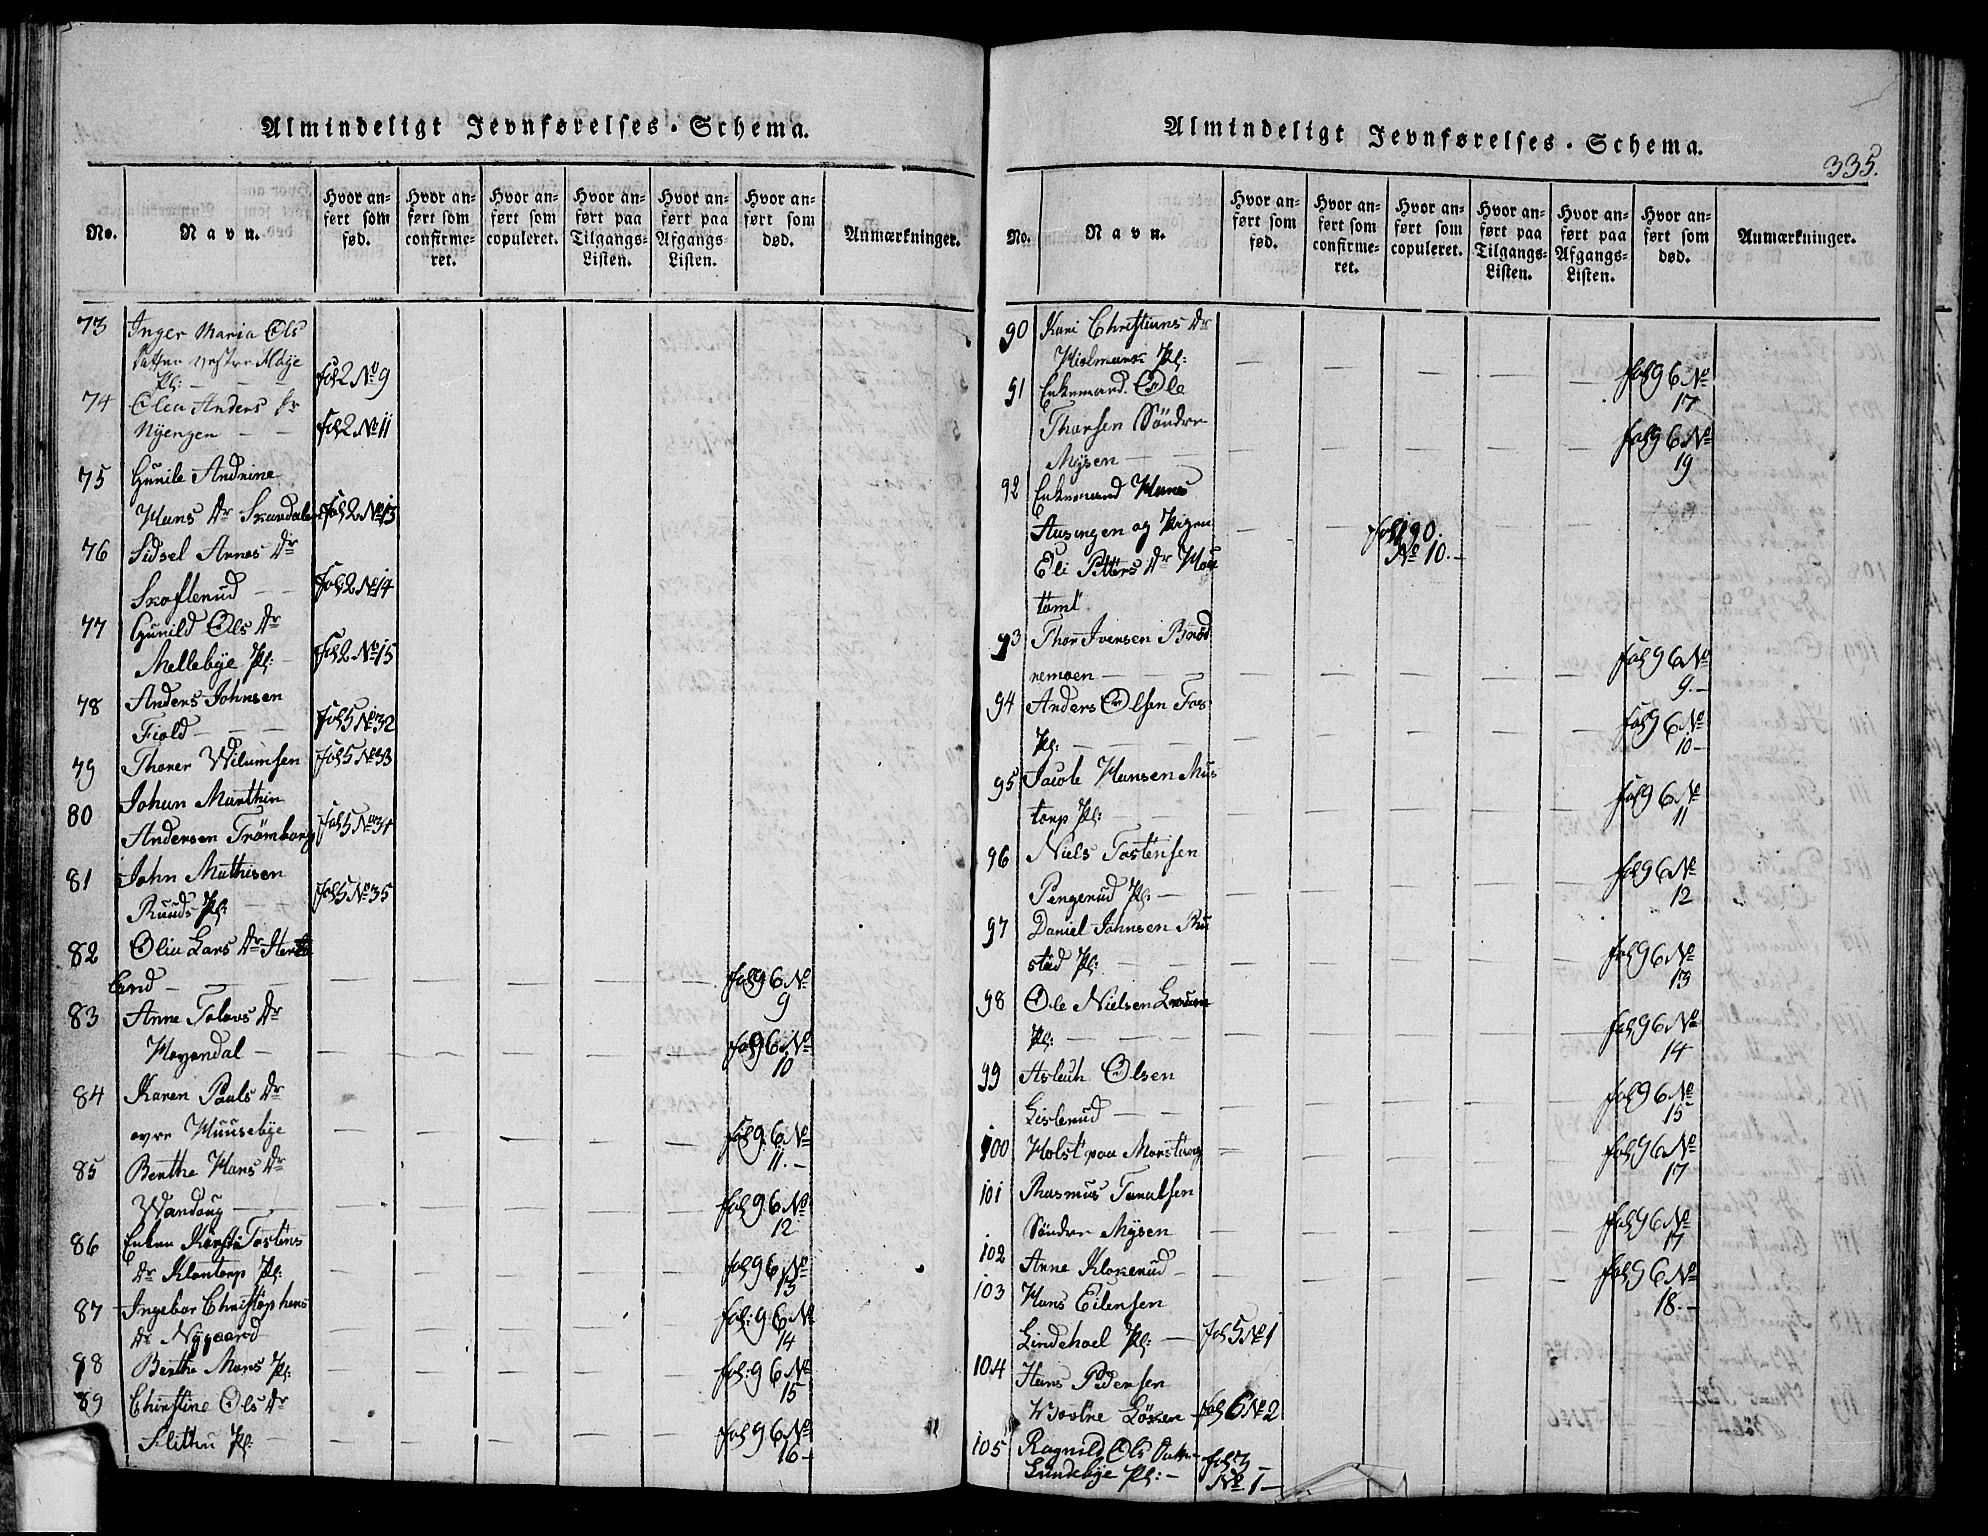 Almindeligt Jevnførelses-Schema.
No.
Navn.
Hvor an-
ført som
fød.
Hvor an-
ført som
confirme-
ret.
Hvor an-
ført som
copuleret.
Hvor an-
ført paa
Tilgangs-
Listen.
Hvor an-
ført paa
Afgangs-
Listen.
Hvor an-
ført som
død.
Anmærkninger.
73 Inger Maria Ols
datter vestre
Pl: — — Fol 2 No 9
74 Olea Anders Dr
Nÿengen — — Fol 2 No 11
75 Gunile Andrine
Hans Dr Skandalen Fol 2 No 13
76 Sidsel Arnes Dr
Skoflerud — — Fol 2 No 14
77 Gunild Ols Dr
Mellebÿe Pl: — Fol 2 No 15
78 Anders Johnsen
Fiold — — Fol 5 No 32
79 Thorer Wilumsen Fol 5 No 33
80 Johan Marthin
Andersen Trömborg Fol 5 No 34
81 John Mathisen
Ruuds Pl: — — Fol 5 No 35
82 Olia Lars Dr
land — — Fol 96 No
9
83 Anne Tolevs Dr
— Fol 96 No
10
84 Karen Pouls Dr
øvre Huusebÿe Fol 9.6 No
11. —
85 Berthe Hans Dr
Wandoug — Fol 9.6 No
12
86 Enken Kirsti Tostens
Dr Klontorp Pl: Fol 96 No
13
87 Ingebor Christophers
Dr Nÿgaard Fol: 96 No
14
88 Berthe Mons Pl: Fol: 96 No
15
89 Christine Ols Dr
Slithu Pl: — Fol 96 No
16 —
Almindeligt Jevnførelses-Schema.
335.
No.
Navn.
Hvor an-
ført som
fød.
Hvor an-
ført som
confirme-
ret.
Hvor an-
ført som
copuleret.
Hvor an-
ført paa
Tilgangs-
Listen.
Hvor an-
ført paa
Afgangs-
Listen.
Hvor an-
ført som
død.
Anmærkninger.
90 Kari Christians Dr
Pl: — Fol 96 No
17
91 Enkemand Ole
Thorsen Söndre
Mÿsen — — Fol 96 No
19
92 Enkemand Hans
og Pigen Fol 190.
Eli Petters Dr No 10. —
93 Thor Iversen Bröd
remoen — — Fol 96 No
9. —
94 Anders Olsen Fos
Pl: — — Fol 96 No
10 —
95 Jacob Hansen Mus
torp Pl: — Fol 96 No
11
96 Niels Tostensen
Pengerud Pl: — Fol 96 No
12
97 Daniel Johnsen Ru
stad Pl: — — Fol 96 No
13
98 Ole Nielsen
Pl: — — Fol 96 No
14
99 Aslach Olsen
Lislerud — — Fol 96 No
15
100 Holst paa Morstong Fol 96 No
17
101 Rasmus
Söndre Mÿsen — Fol 96 No
17
102 Anne Klokerud — Fol 96 No
18. —
103 Hans Eilensen
Lindehoel Pl: — Fol 5 No 1
104 Hans Pedersen
Löken — Fol 6 No 2
105 Ragnild Ols Datter Fol 3 —
Lundebÿe Pl: — No. 1 —